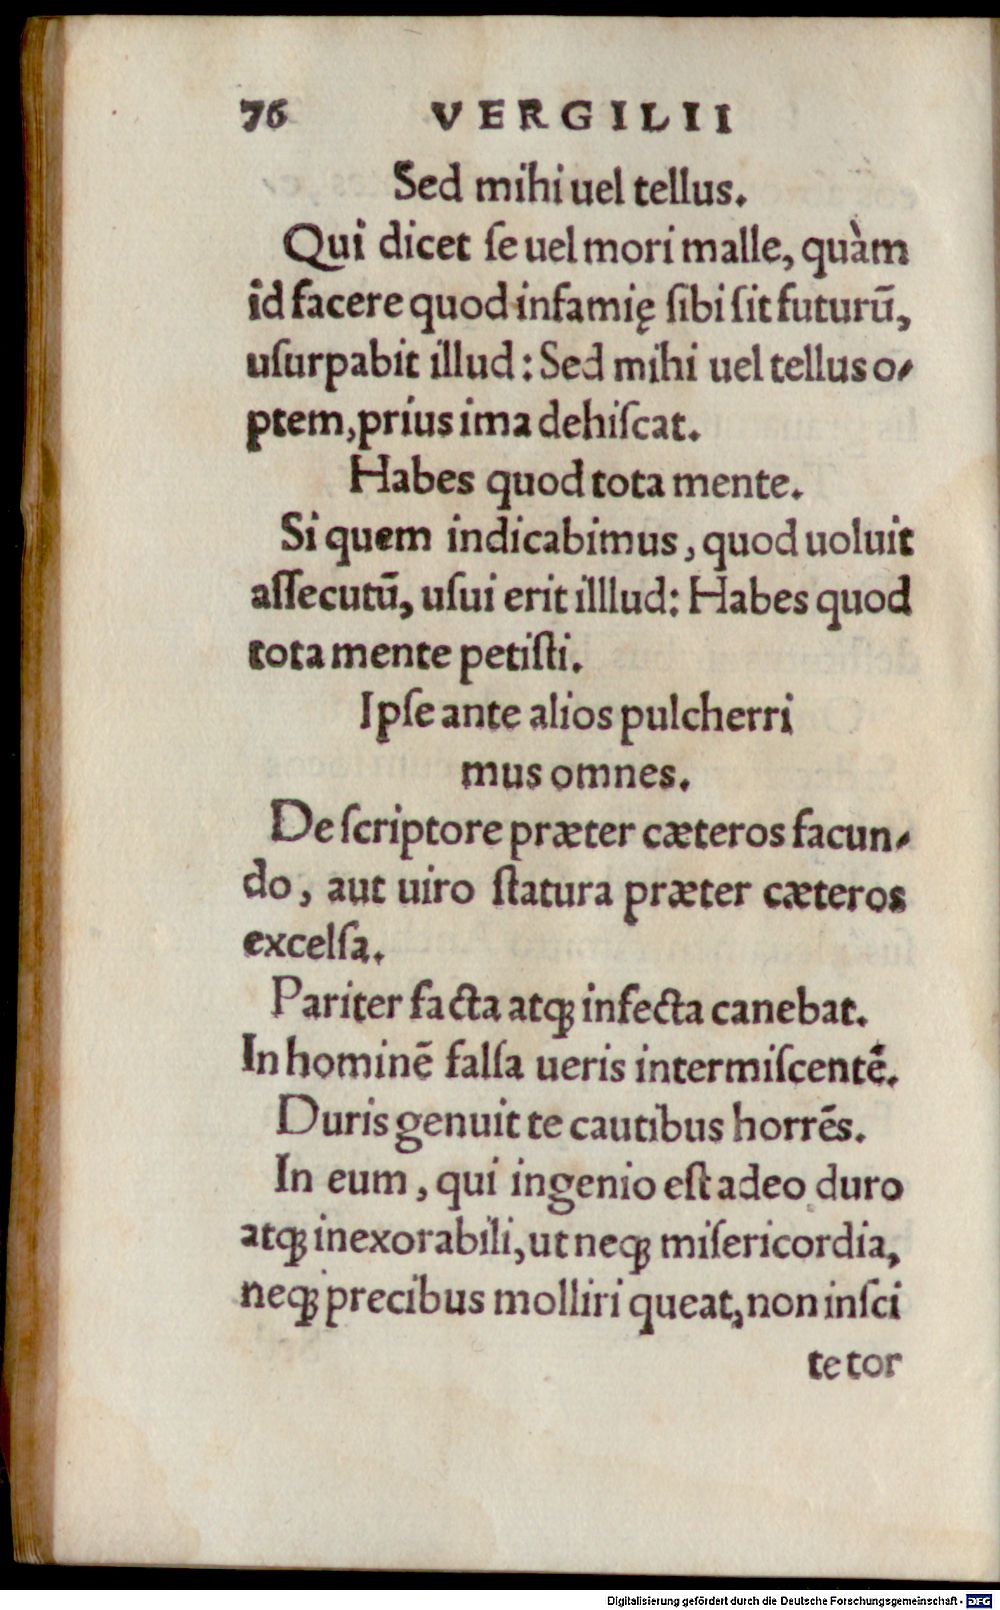 76 VERGILII
Sed mihi uel tellus.
Qui dicet ſe uel mori malle, quàm
id facere quod infamię ſibi ſit futurū,
uſurpabit illud: Sed mihi uel tellus o-
ptem, prius ima dehiſcat.
Habes quod tota mente.
Si quem indicabimus, quod uoluit
aſſecutū, uſui erit illlud: Habes quod
tota mente petiſti.
Ipſe ante alios pulcherri
mus omnes.
De ſcriptore præter cæteros facun-
do, aut uiro ſtatura præter cæteros
excelſa.
Pariter facta atq; infecta canebat.
In hominē falſa ueris intermiſcentē.
Duris genuit te cautibus horrēs.
In eum, qui ingenio eſt adeo duro
atq; inexorabili, ut neq; miſericordia,
neq; precibus molliri queat, non inſci
te tor
Digitalisierung gefördert durch die Deutsche Forschungsgemeinschaft - DFG